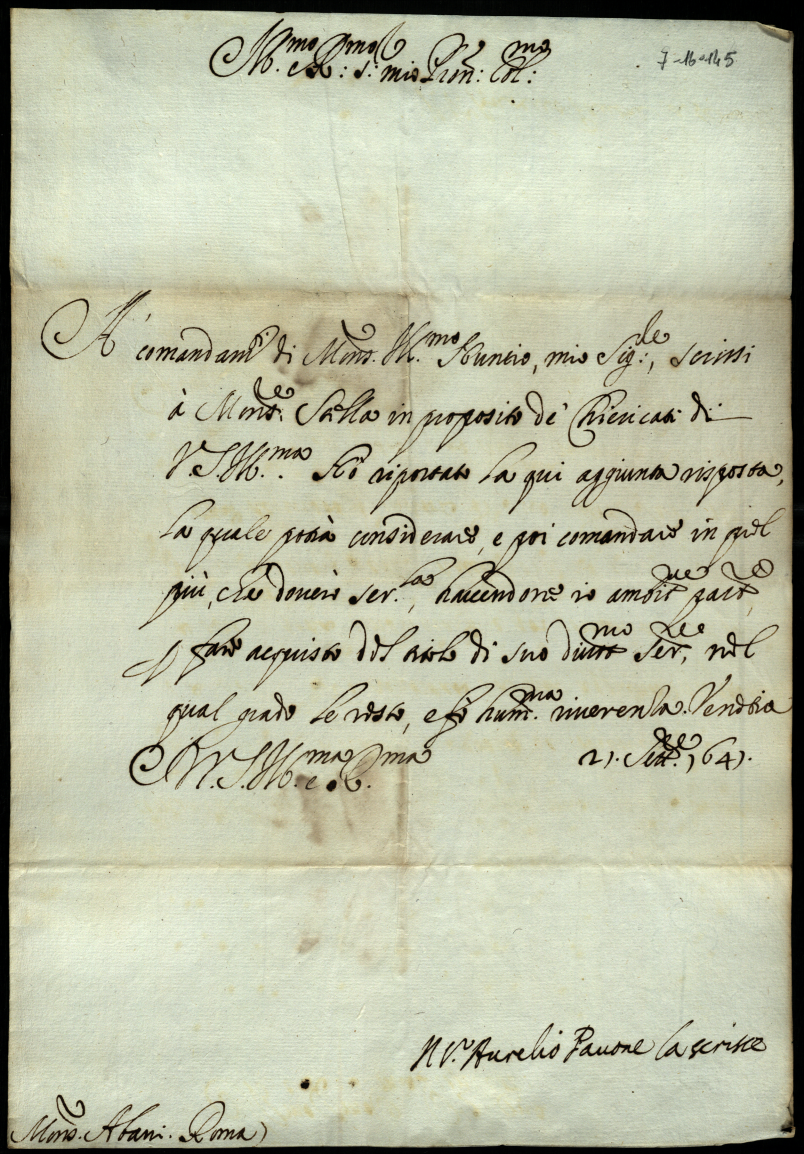 Ill.mo e R.mo S.r mio P̃ron: Col.mo
7-16-145
A' comandam.ti di Mons.r Ill.mo Nuntio, mio Sig.le, scrissi
à Mons.re Stella in proposito de' Chiericati di
V. S. Ill.ma Hò riportato la qui aggiunta risposta,
la quale potrà considerare, e poi comandare in quel
più, che doverò ser.la, havendone io ambit.ne part.re,
fare acquisto del titolo di suo divot.mo Ser.re, nel
qual grado le resto, e fò hum.ma riverenza. Venetia
21. Sett.re 1641.
Di V. S. Ill.ma e R.ma
Aurelio Pavone la scrisse
Mons.r Albani. Roma